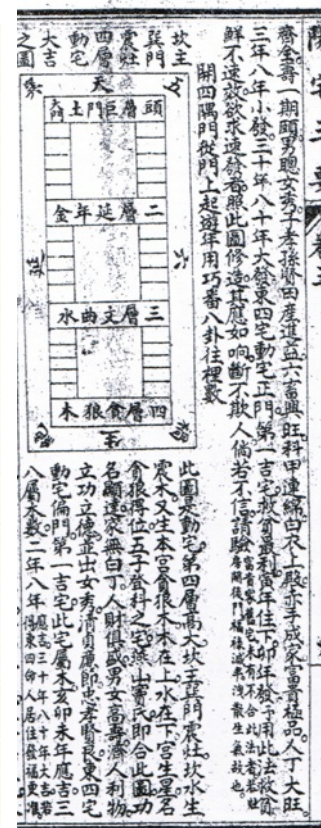 陽宅三要 卷三
齊全壽一期頤男聰女秀子孝孫賢田產進益六畜興旺科甲連綿白衣上殿赤手成家富貴極品人丁大旺
三年八年小發三十年八十年大發東四宅動宅正門第一吉宅救貧最利當年住下卯年發予用此法救貧
鮮不速效欲求速發者照此圖修造其應如响斷不欺人倘若不信請驗
開四隅門從門上起遊年用巧番八卦往裡數
坎主
巽門
震灶
四層
動宅
大吉
之圖
天
五
六
頭層巨門土
二層延年金
三層文曲水
四層貪狼木
此圖是動宅第四層高大坎主巽門震灶坎水生
震木又生本宮貪狼木木在上水在下宮生星名
貪狼得位五子登科之宅無山實民即合此圖功
名顯達家無白丁人財俱盛男女高壽濟人利物
立功立德並出女秀清貞廉節忠孝賢良東四宅
動宅偏門第一吉宅此宅屬木亥卯未年應吉三
八屬木數三年八年應吉三十年八十年大吉若
得東四命人居住發福更準